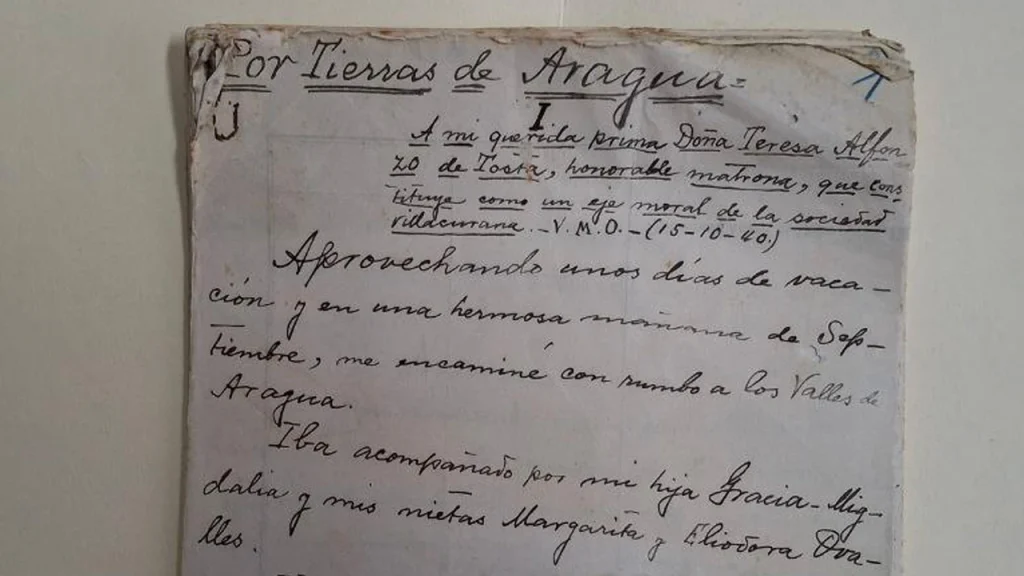 Por Tierras de Aragua=
1
I
A mi querida prima Doña Teresa Alfon
zo de Tosta, honorable matrona, que cons-
tituye como un eje moral de la sociedad
villacurana. - V. M. O. - (15-10-40.)
Aprovechando unos días de vaca-
ción y en una hermosa mañana de Sep-
tiembre, me encaminé con rumbo a los Valles de
Aragua.
Iba acompañado por mi hija Gracia-Mig-
dalia y mis nietas Margarita y Eliodora Ova-
lles.